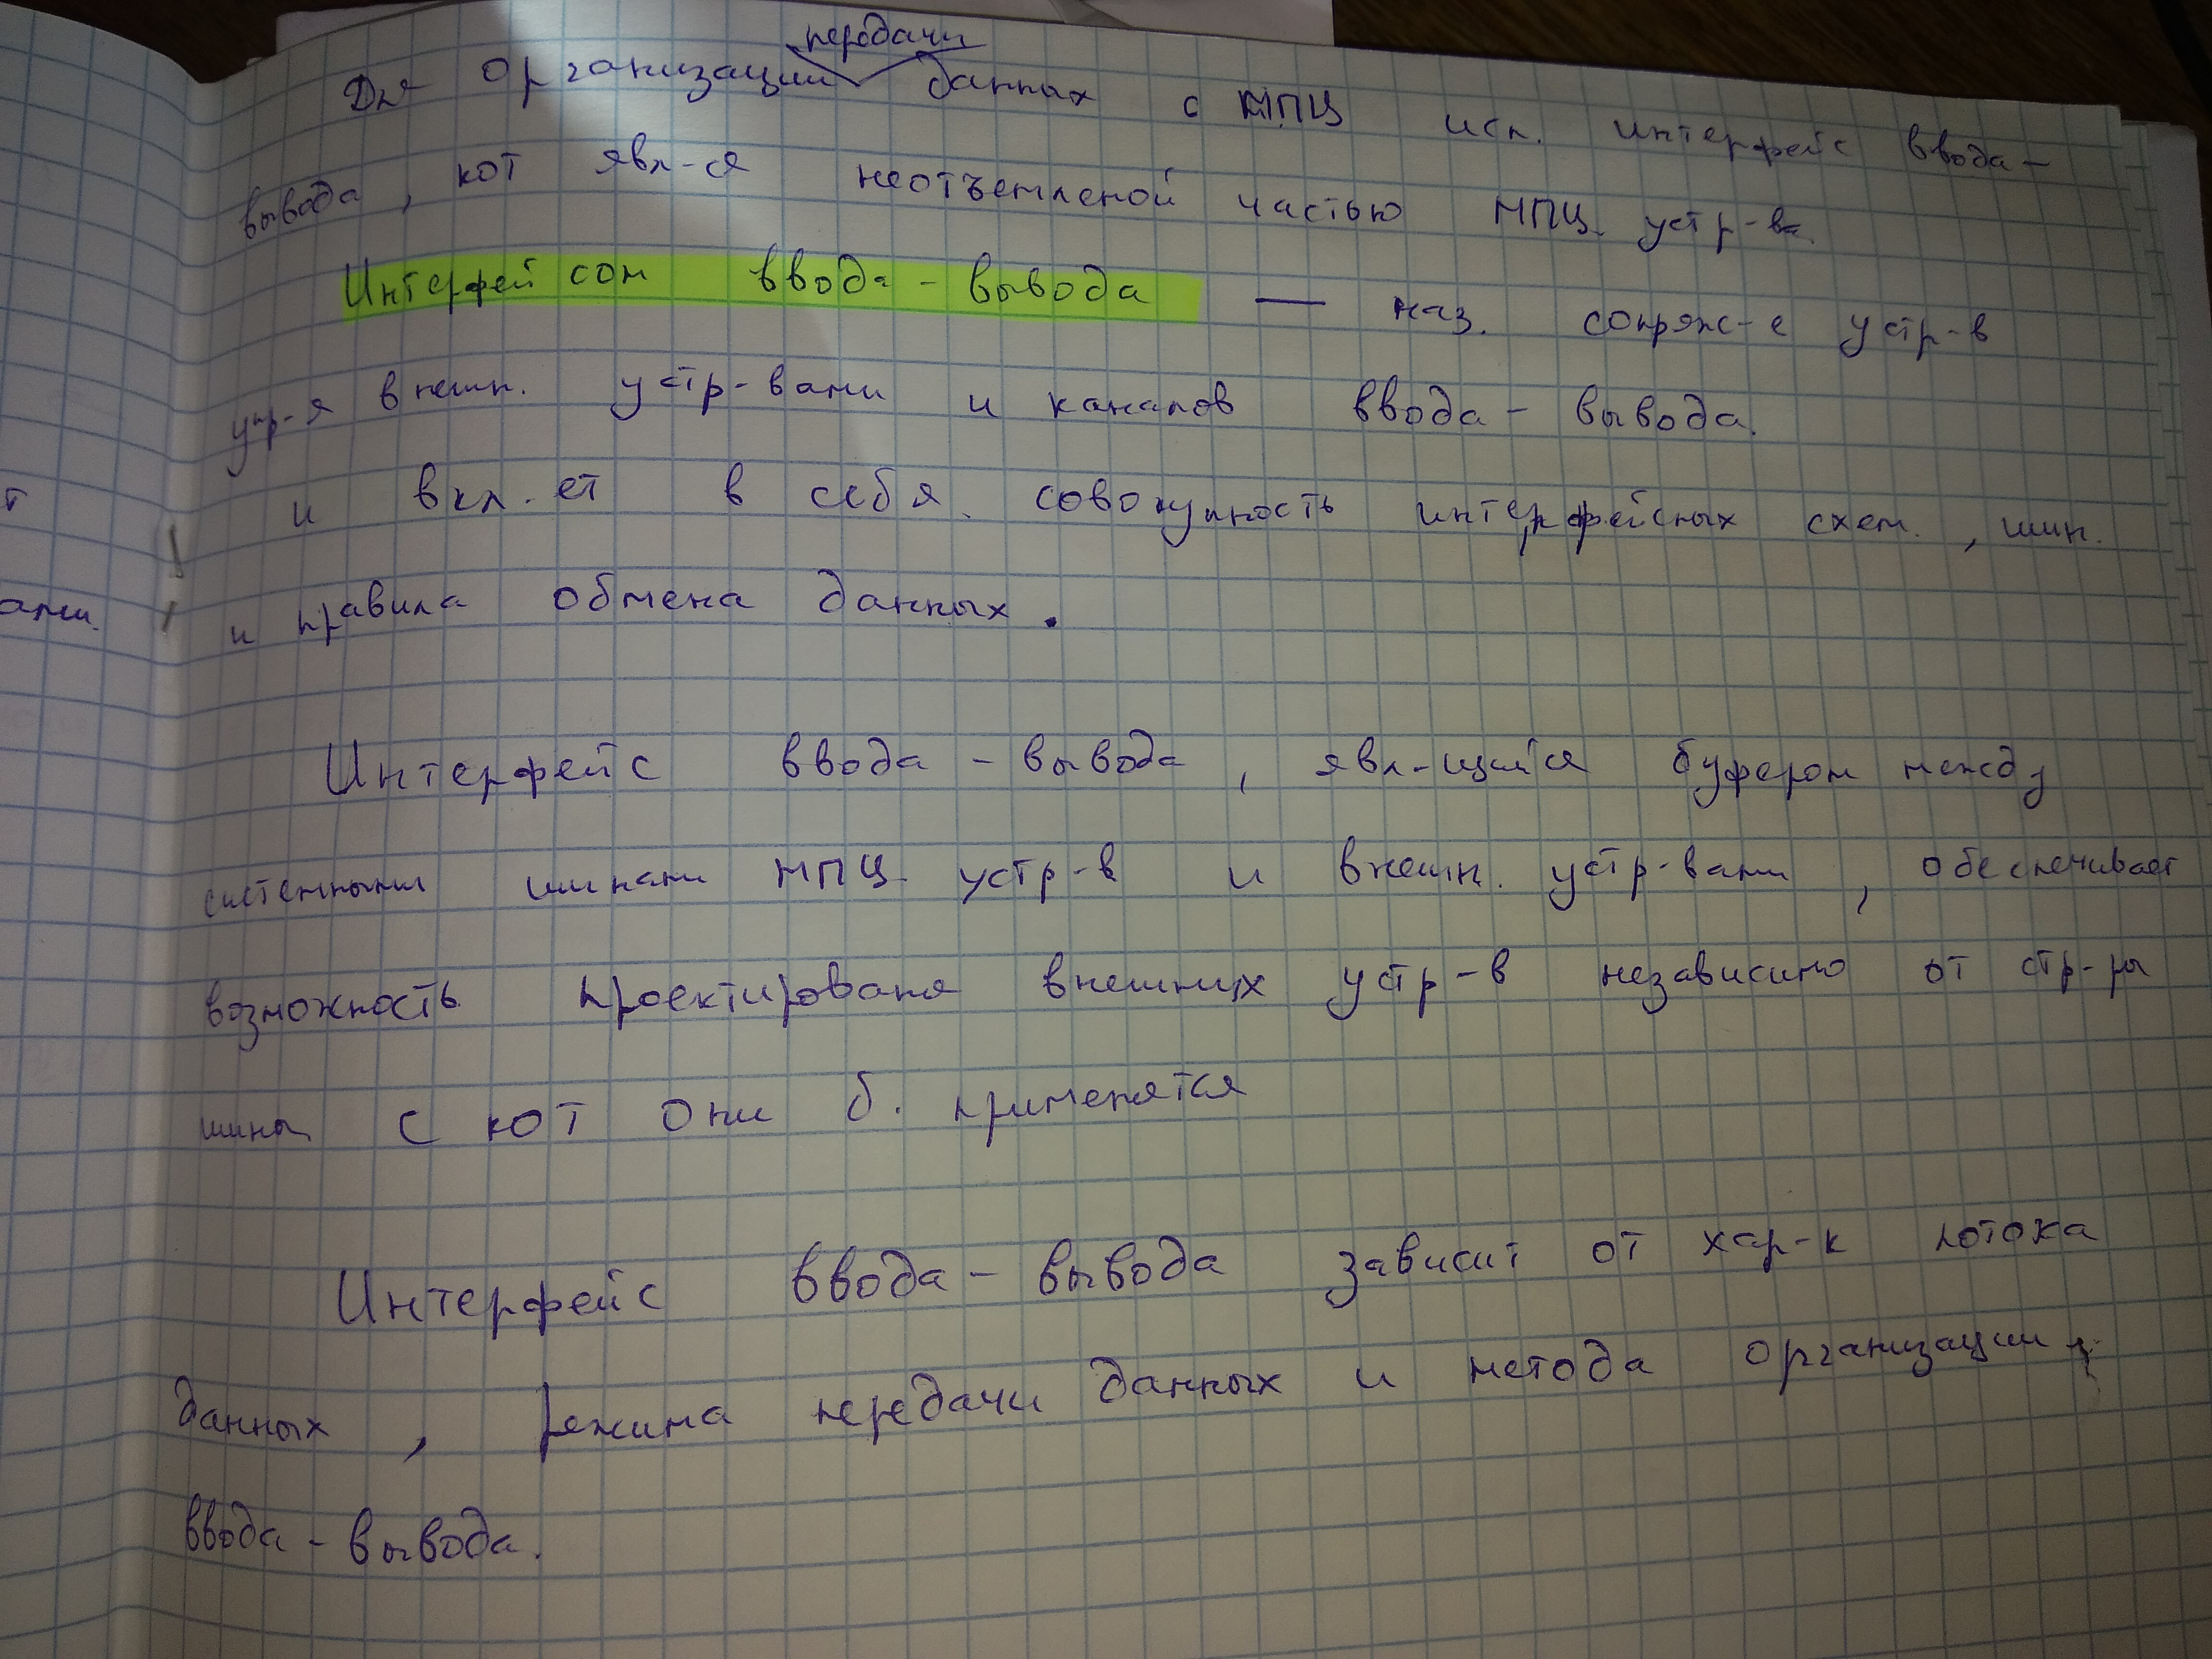 Для организации передачи данных с МПЦ исп. интерфейс ввода-
вывода, кот явл-ся неотъемленой частью МПЦ устр-ва.
Интерфейсом ввода - вывода — наз. сопряж-е устр-в
упр-я внешн. устр-вами и каналов ввода - вывода.
и вкл.ет в себя совокупность интерфейсных схем, шин.
и правила обмена данных.
Интерфейс ввода - вывода, явл-щийся буфером между
системными шинами МПЦ устр-в и внешн. устр-вами, обеспечивает
возможность проектированя внешних устр-в независимо от стр-ры
шины с кот они б. применятся
Интерфейс ввода - вывода зависит от хар-к потока
данных, режима передачи данных и метода организации
ввода - вывода.
т
ами.